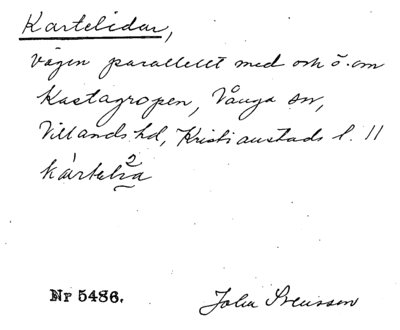 Kartelidar,
vägen parallellt med och ö. om
Kastagropen, Vånga sn,
Villands hd, Kristianstads l. 11
Nr 5486.
John